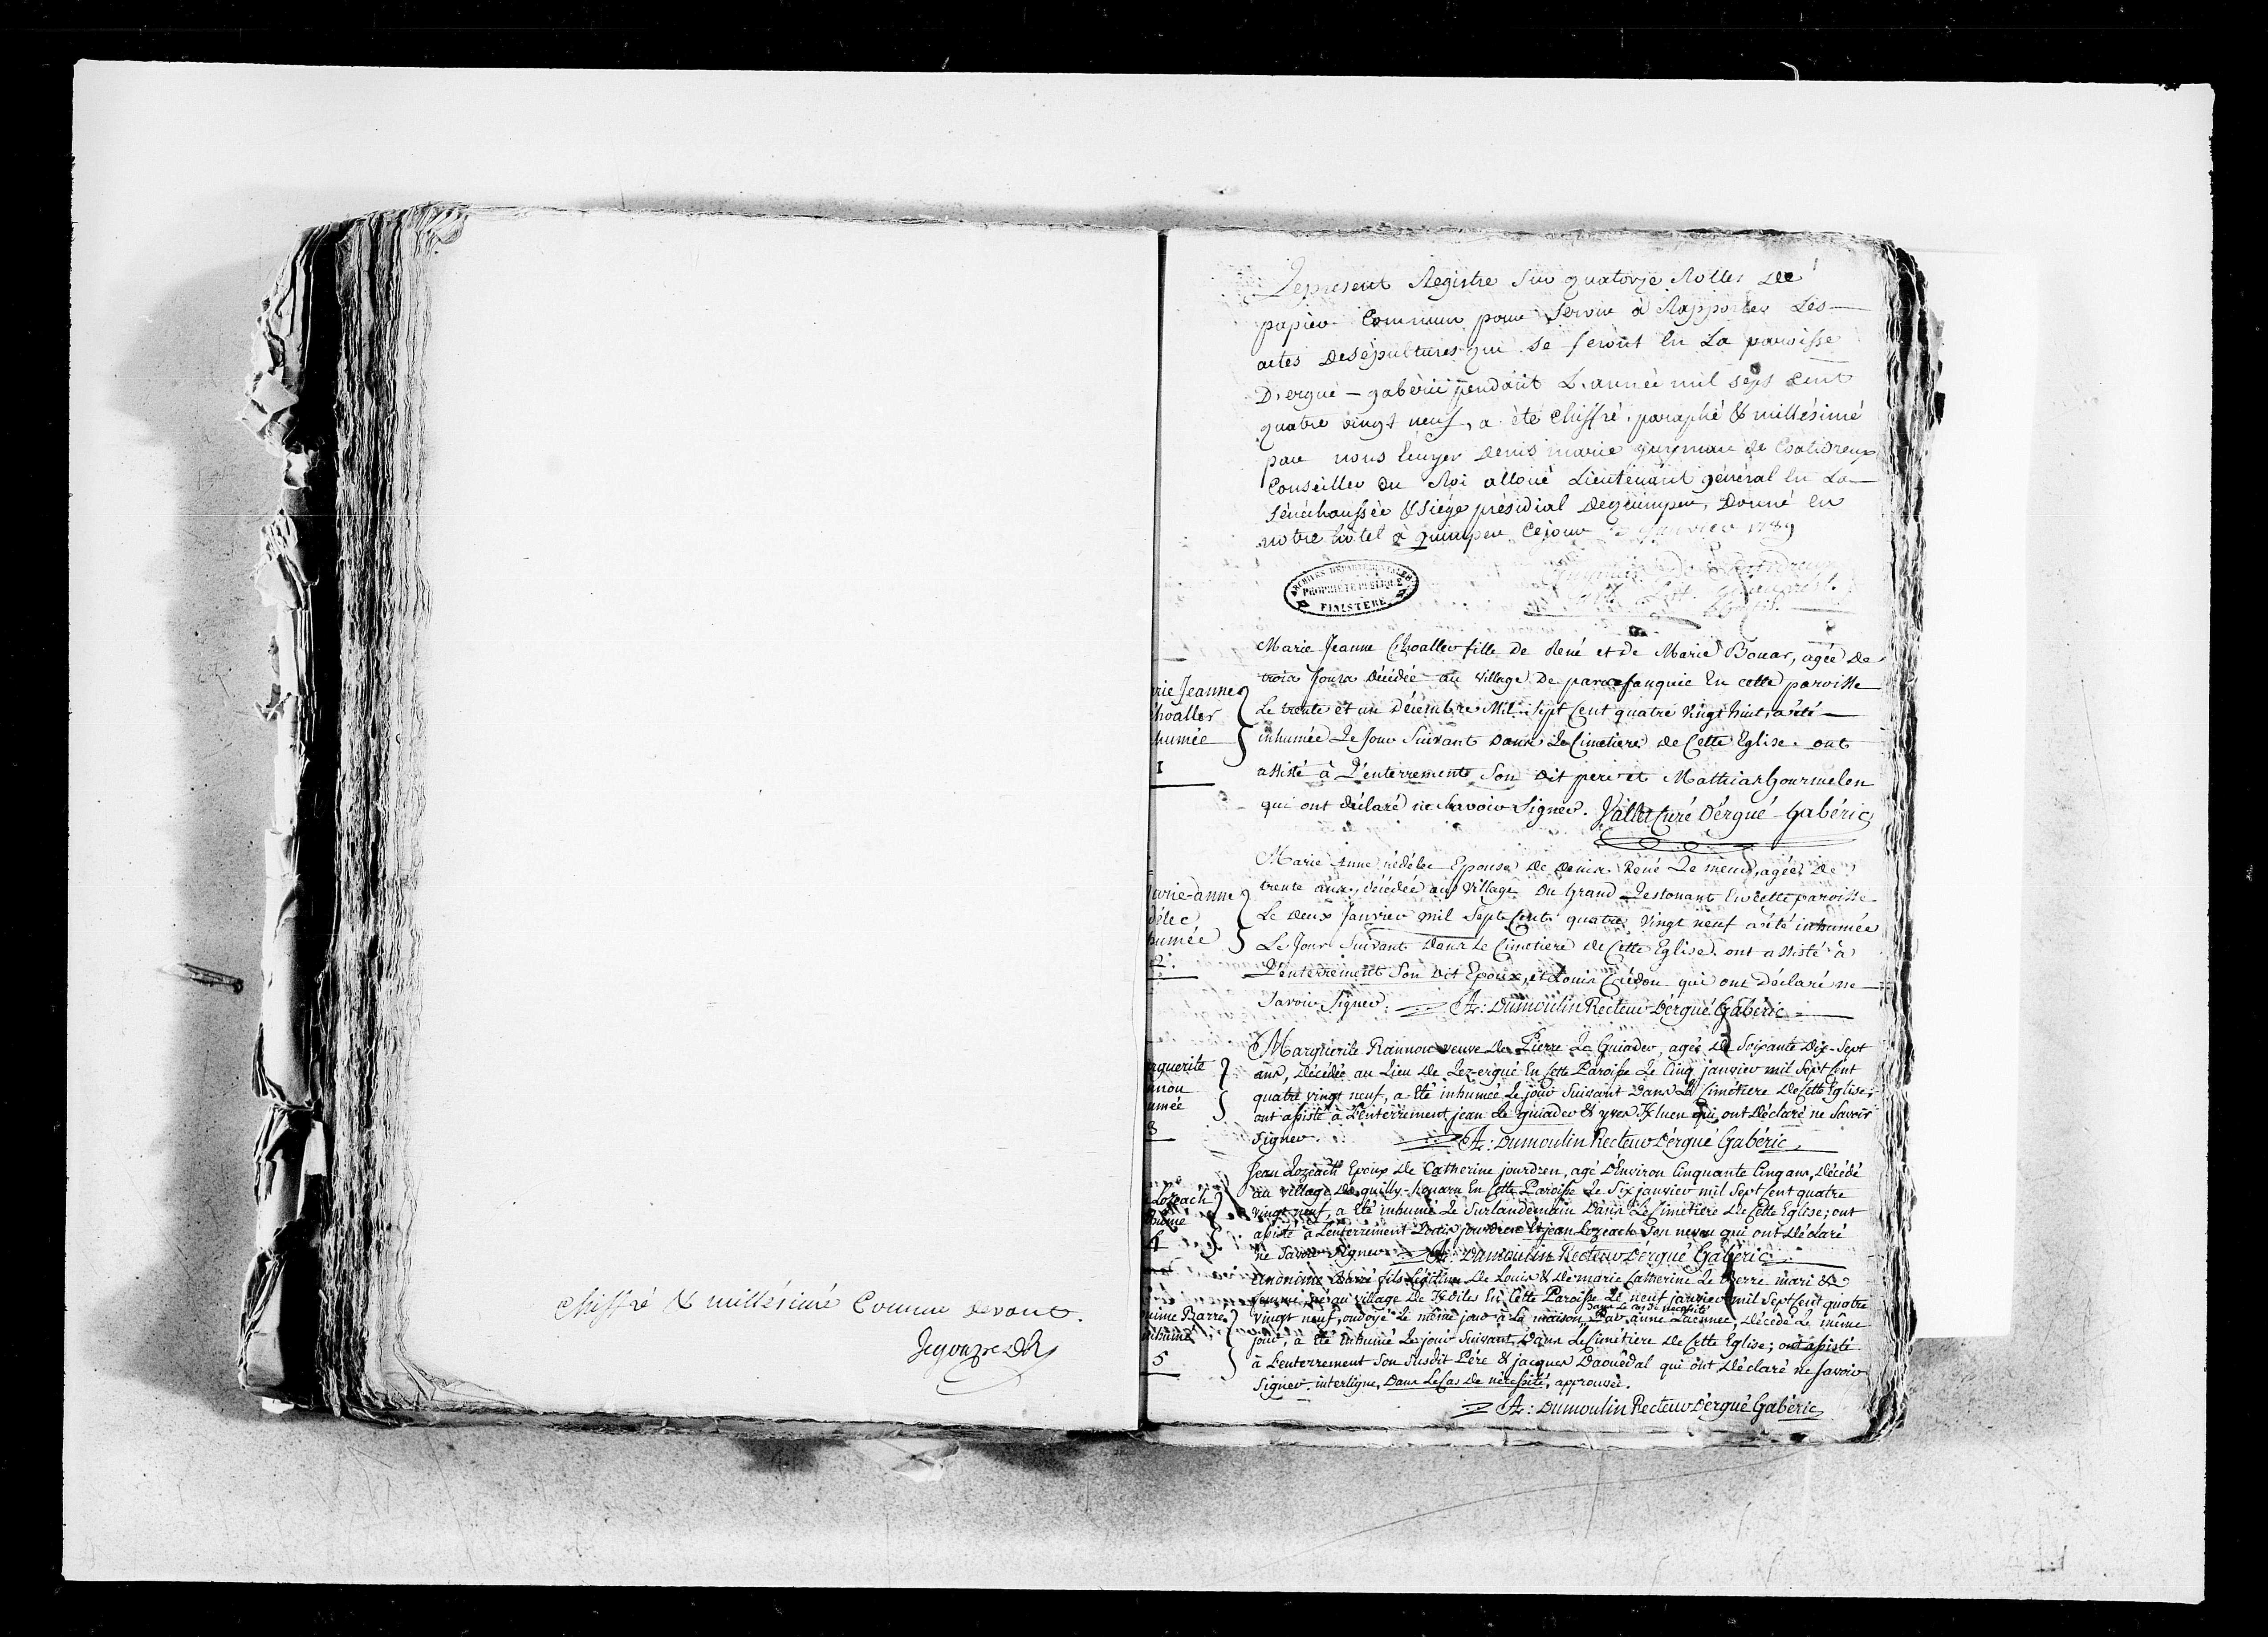 chiffré & millésimé Comme devant.
Le present Registre sur quatorze Rolles de
papier Commun pour servir à Rapporter Les
actes de sépultures qui se feront En La paroisse
D'ergué-gabéric pendant L'année mil sept cent
quatre vingt neuf, a été chiffré, paraphé & millésimé
par nous Ecuyer denis marie guymar de Coatidreux
Conseiller du Roi alloué Lieutenant général En La
sénéchaussée & siége présidial de quimper, Donné en
notre hôtel à quimper Ce jour janvier 1789
ARCHIVES DEPARTEMENTALES
PROPRIÉTÉ PUBLIQUE
FINISTÈRE
rie Jeanne
hoaller
humée
1
Marie Jeanne Choaller fille de René et de Marie Bouar, agée de
trois Jours décédée au village de parc Enn cette paroisse
Le trente et un Décembre Mil Sept Cent quatre Vingt huit, a été
inhumée Le Jour Suivant dans Le Cimetiere de Cette Eglise. ont
assisté à L'enterrement Son dit pere et Mathias Gourmelen
qui ont déclaré ne Savoir Signer. Vallet Curé D'ergué-Gabéric
arie-anne
délec
humée
2.
Marie Anne nédélec Epouse de René Le meur, agée De
trente ans, décédée au Village du Grand Lestonant En cette paroisse
Le deux Janvier mil Sept Cent quatre Vingt neuf a été inhumée
Le Jour Suivant dans Le Cimetiere de Cette Eglise. ont assisté à
L'enterrement Son dit Epoux, et Louis Crédou qui ont déclaré ne
Savoir Signer. A: Dumoulin Recteur D'ergué Gabéric
rguerite
nnou
umée
3
Marguerite Rannou veuve De Pierre Le Guiader, agée De Soixante Dix-Sept
ans, Décédée au Lieu De Lez-ergué En Cette Paroisse Le Cinq janvier mil Sept Cent
quatre vingt neuf, a Eté inhumée Le jour Suivant Dans Le Cimetiere De Cette Eglise;
ont assisté à L'enterrement jean Le guiader & yves Kluen qui ont Déclaré ne Savoir
Signer. A: Dumoulin Recteur D'ergué Gabéric
Lozeach
humé
4
Jean Lozeach Epoux De Catherine jourdren, agé D'Environ Cinquante Cinq ans, Décédé
au village De quilly-houarn En Cette Paroisse Le Six janvier mil Sept Cent quatre
vingt neuf, a Eté inhumé Le Surlandemain Dans Le Cimetiere De Cette Eglise; ont
assisté à L'enterrement Louis jourdren & jean Lozeach Son neveu qui ont Déclaré
ne Savoir Signer. A: Dumoulin Recteur D'ergué Gabéric
nime Barré
inhumé
5
Anonime Barré fils Légitime De Louis & De marie Catherine Le Berre mari &
femme, né au village De K En Cette Paroisse Le neuf janvier mil Sept Cent quatre
Dans Le cas De nécessité
vingt neuf, ondoyé Le même jour à La maison, Par anne Laënnec, Décédé Le même
jour, a Eté inhumé Le jour Suivant, Dans Le Cimetiere De Cette Eglise; ont assisté
à L'enterrement Son Susdit Pére & jacques Daouëdal qui ont Déclaré ne Savoir
Signer. interligne, Dans Le Cas De nécessité, approuvée.
A: Dumoulin Recteur D'ergué Gabéric